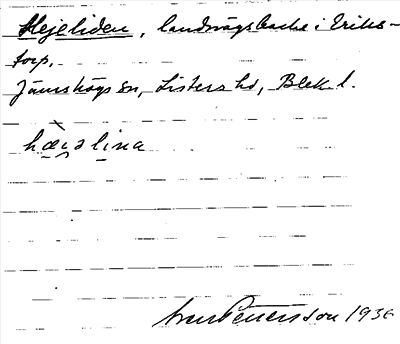 Hejeliden, landsvägsbacke i Eriks-
torp,
Jämshögs sn, Listers hd, Blek. l.
hæi̯əlina
Sven Petersson 1936